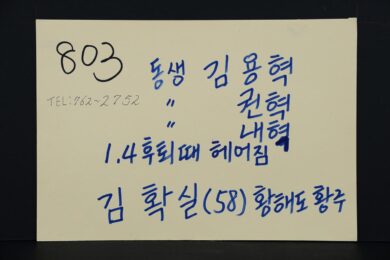 803
동생 김용혁
TEL:762-2752
〃 권혁
〃 내혁
1.4후퇴때 헤어짐
김확실(58) 황해도 황주